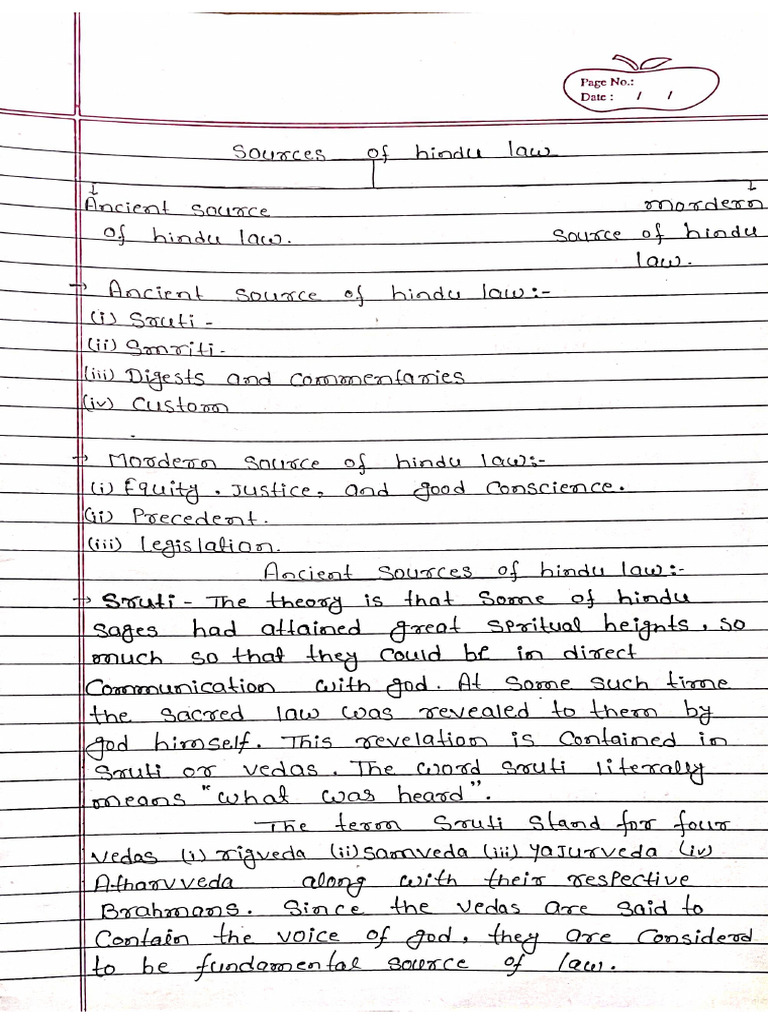 Page No.:
Date : / /
Sources of hindu law
Ancient source
of hindu law.
mordern
source of hindu
law.
→ Ancient source of hindu law:-
(i) Sruti -
(ii) Smriti -
(iii) Digests and commentaries
(iv) Custom
→ Mordern source of hindu law:-
(i) Equity, Justice, and good conscience.
(ii) Precedent.
(iii) legislation.
Ancient sources of hindu law:-
→ Sruti - The theory is that some of hindu
sages had attained great spritual heights, so
much so that they could be in direct
communication with god. At some such time
the sacred law was revealed to them by
god himself. This revelation is contained in
sruti or vedas. The word sruti literally
means "what was heard".
The term Sruti stand for four
vedas (i) rigveda (ii) samveda (iii) yajurveda (iv)
Atharvveda along with their respective
Brahmans. Since the vedas are said to
contain the voice of god, they are considerd
to be fundamental source of law.